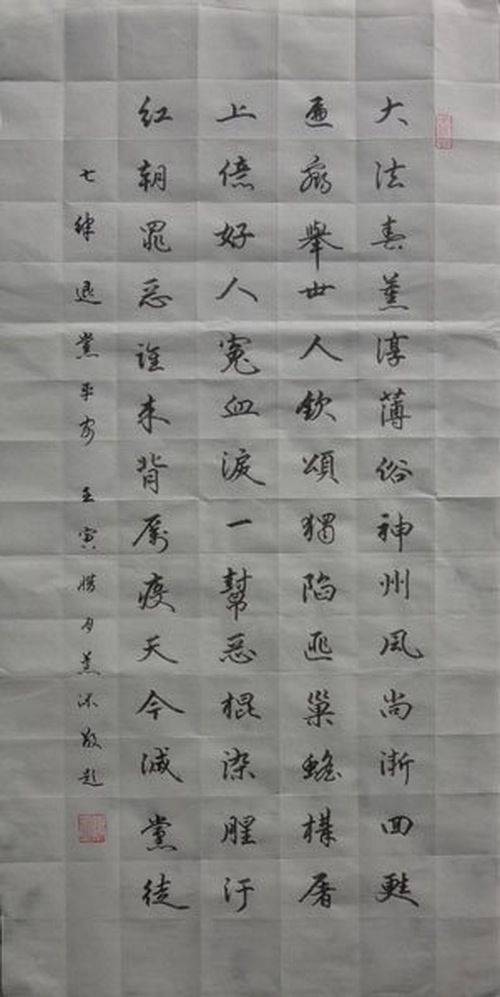 大法春薰淳薄俗神州風尚漸回甦
舉世人欽頌獨陷匪巢構屠
上億好人冤血淚一幫惡棍染腥汙
紅朝罪惡誰來背厲疫天今滅黨徒
七律 退黨平安 壬寅臘月薰沐敬題